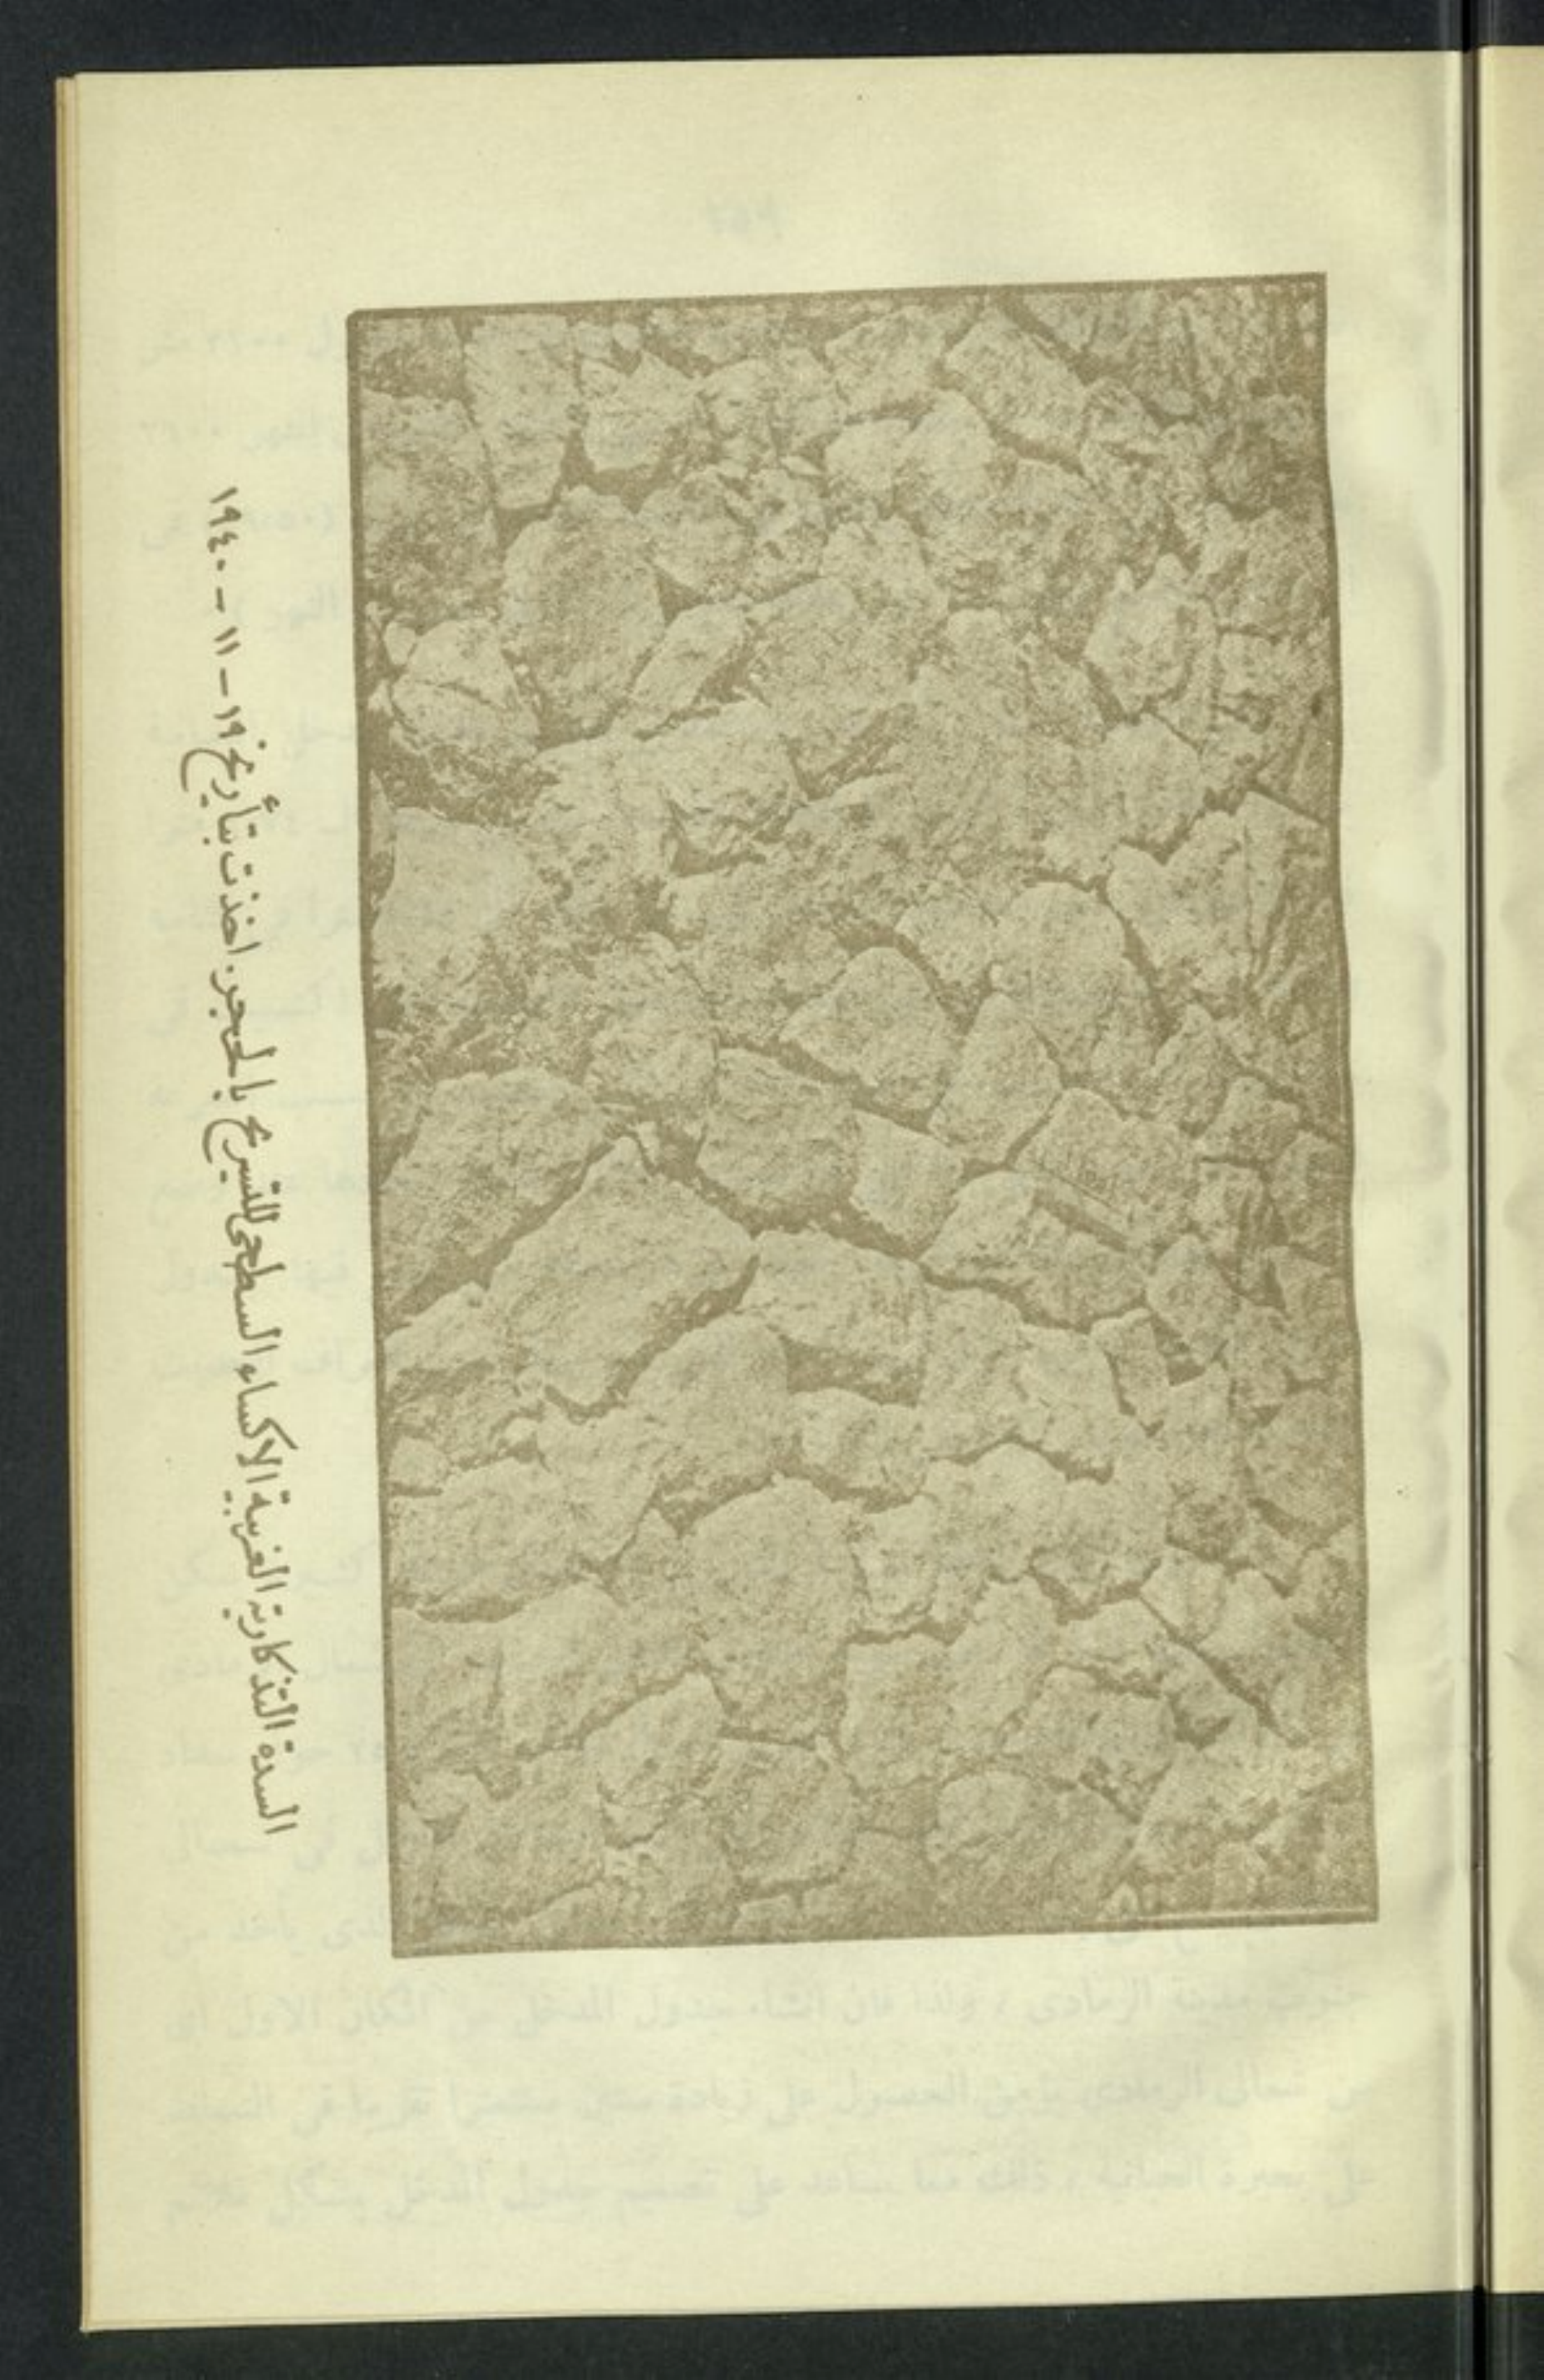 السدة التذكارية الغربية الاكساء السطحي للتسريح بالحجر. اخذت بتأريخ ١٩ - ١١ - ١٩٤٠